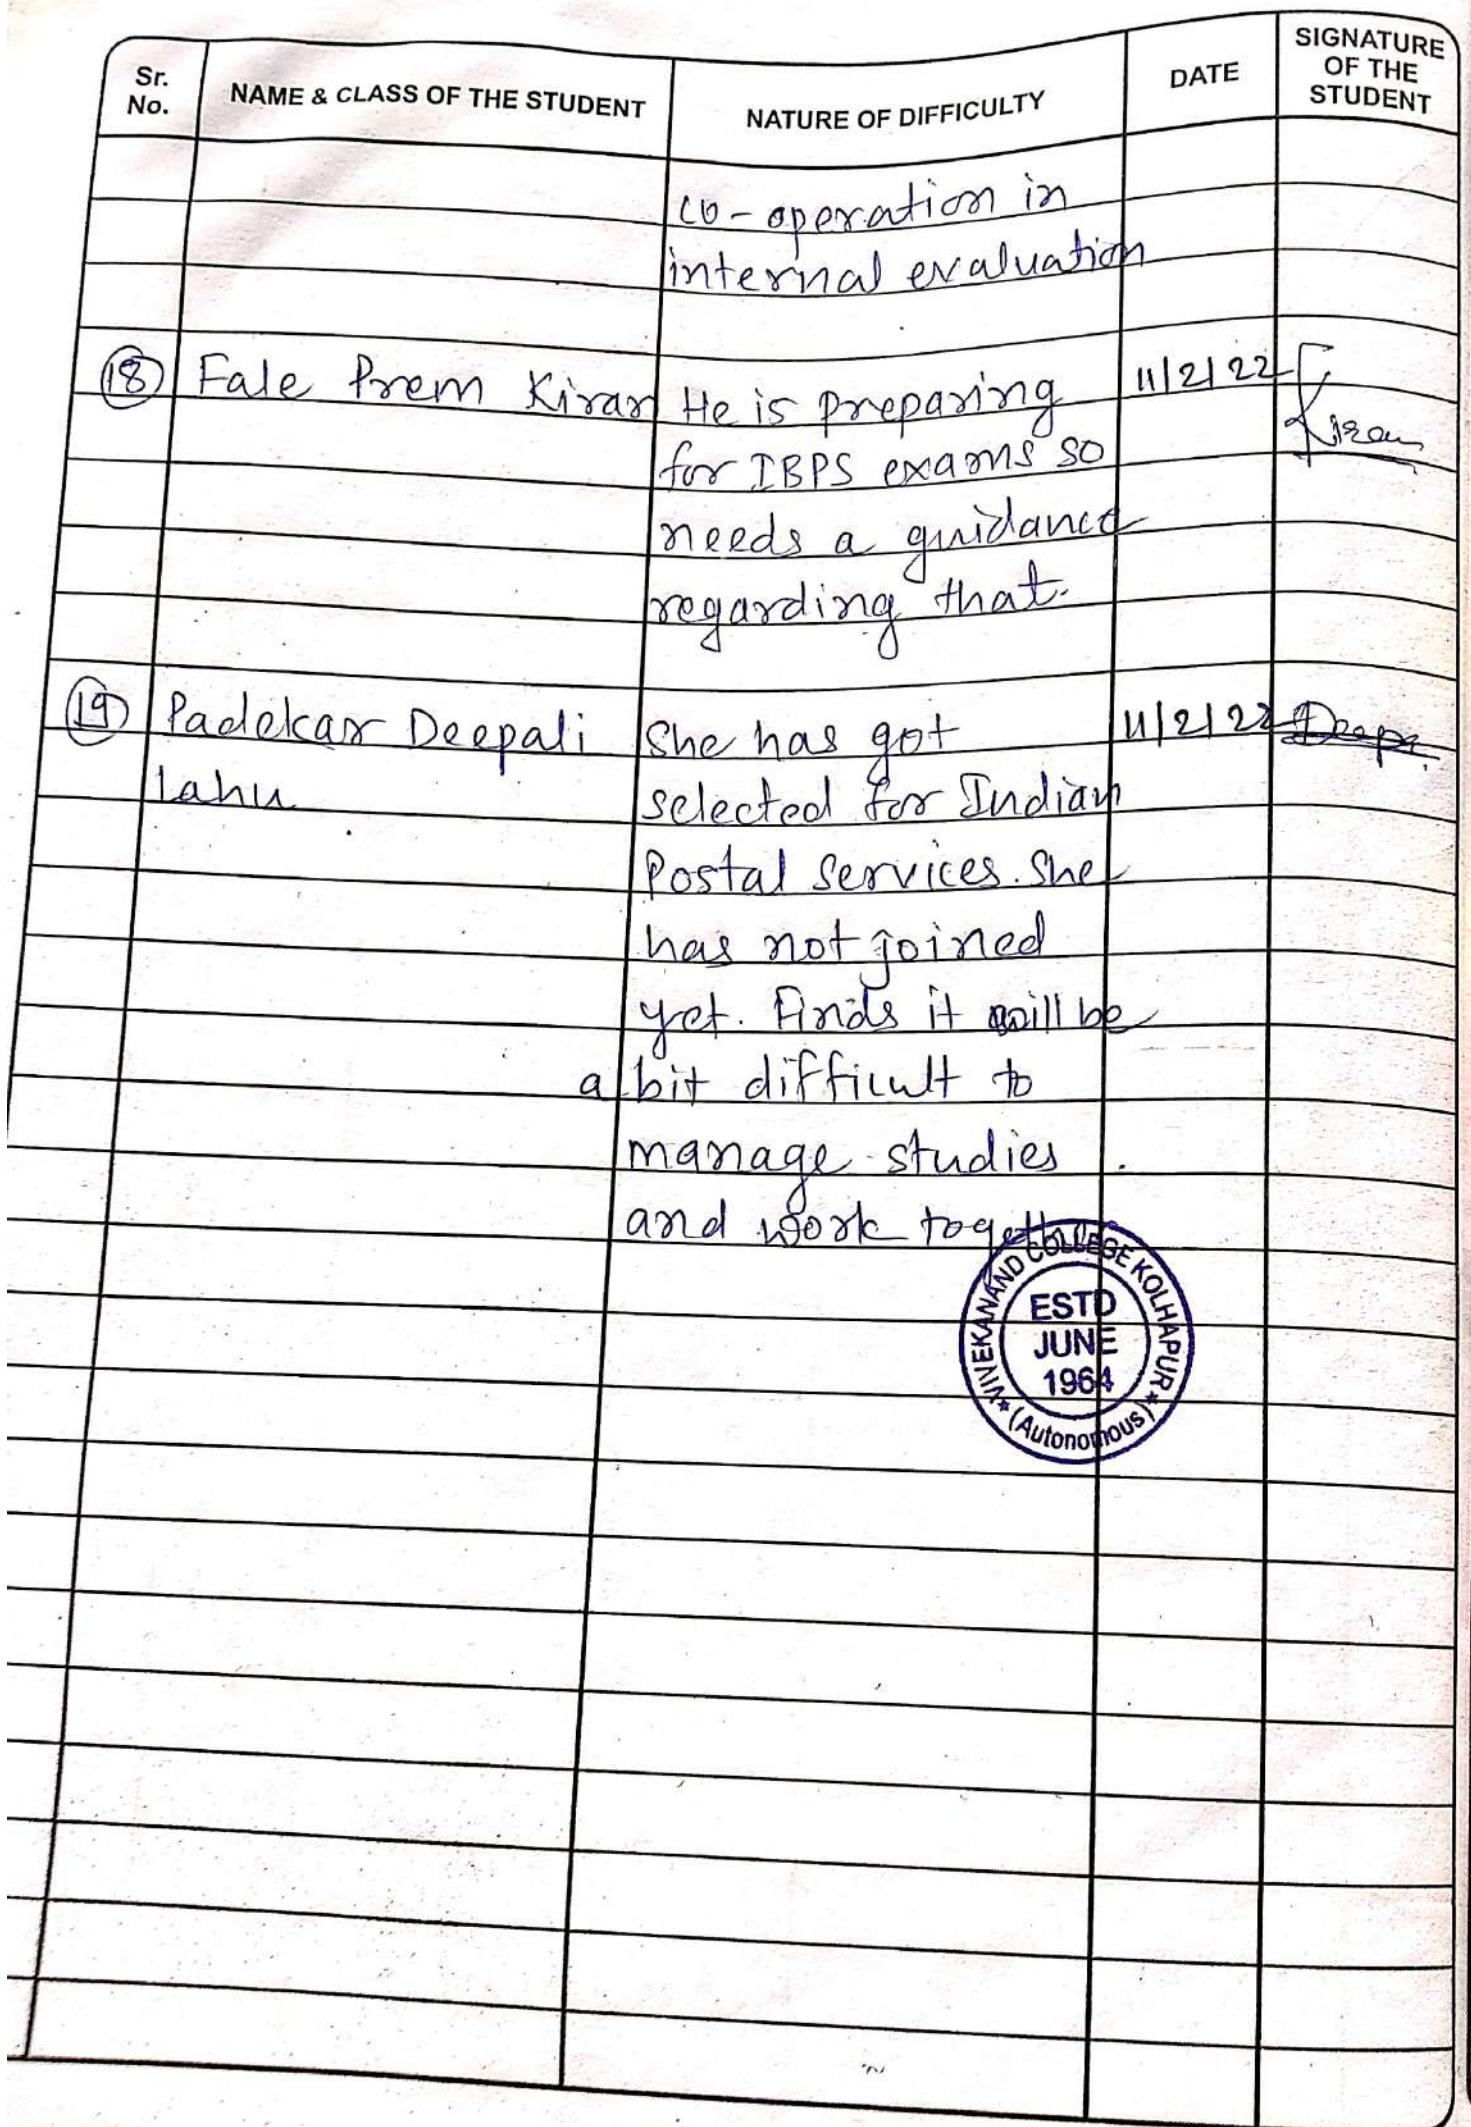 Sr. No.
NAME & CLASS OF THE STUDENT
NATURE OF DIFFICULTY
DATE
SIGNATURE OF THE STUDENT
co-operation in
internal evaluation
18 Fale Prem Kiran He is preparing 11/2/22 Kiran
for IBPS exams so
needs a guidance
regarding that.
19 Padekar Deepali She has got 11/2/22
Lahu selected for Indian
Postal Services. She
has not joined
yet. Finds it will be
a bit difficult to
manage studies
and work together
VIVEKANAND COLLEGE KOLHAPUR
ESTD
JUNE
1964
(Autonomous)